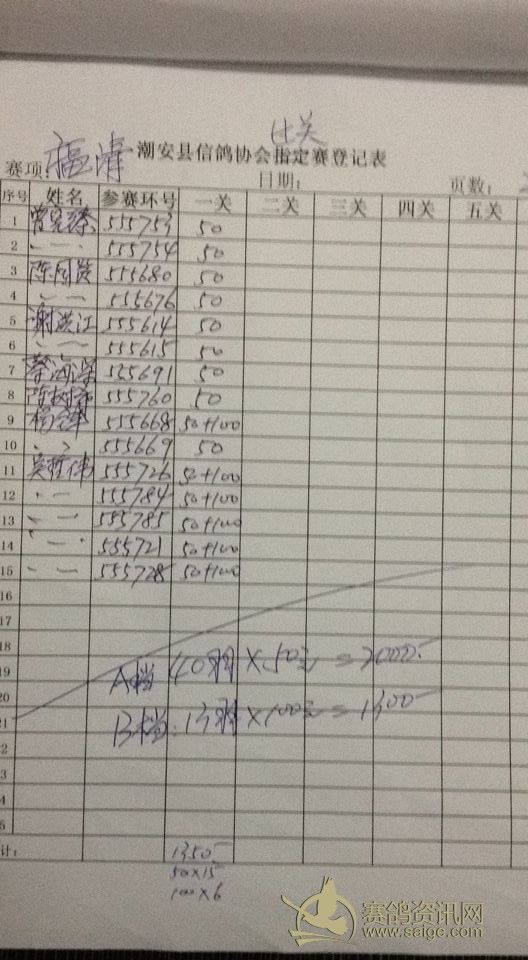 比关
福清
潮安县信鸽协会指定赛登记表
赛项: 日期: 页数:
序号 姓名 参赛环号 一关 二关 三关 四关 五关
1 555753 50
2 〃 一 555754 50
3 陈国贤 555680 50
4 〃 一 555676 50
5 谢洪江 555614 50
6 〃 一 555615 50
7 蔡海 525691 50
8 陈树 555760 50
9 杨 555668 50+100
10 〃 555669 50
11 吴哲伟 555726 50+100
12 〃 一 555784 50+100
13 〃 一 555785 50+100
14 〃 一 555721 50+100
15 〃 一 555728 50+100
16
17
18
19 A档 40羽×50元=2000
20
21 B档:13羽×100元=1300
2
3
4
5
计: 1350
50×15
100×6
赛鸽资讯网
www.saige.com